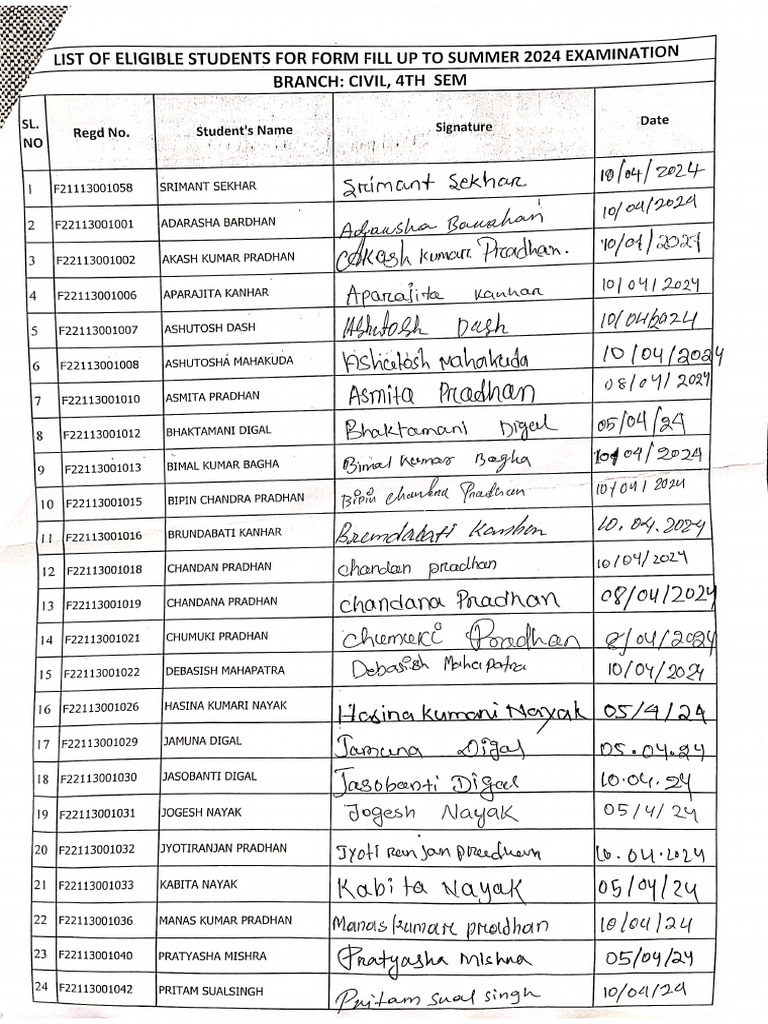 LIST OF ELIGIBLE STUDENTS FOR FORM FILL UP TO SUMMER 2024 EXAMINATION
BRANCH: CIVIL, 4TH SEM
SL. NO Regd No. Student's Name Signature Date
1 F21113001058 SRIMANT SEKHAR Srimant Sekhar 10/04/2024
2 F22113001001 ADARASHA BARDHAN Adarsha Bardhan 10/04/2024
3 F22113001002 AKASH KUMAR PRADHAN Akash Kumar Pradhan. 10/04/2024
4 F22113001006 APARAJITA KANHAR Aparajita Kanhar 10/04/2024
5 F22113001007 ASHUTOSH DASH Ashutosh Dash 10/04/2024
6 F22113001008 ASHUTOSHA MAHAKUDA Ashutosh Mahakuda 10/04/2024
7 F22113001010 ASMITA PRADHAN Asmita Pradhan 08/04/2024
8 F22113001012 BHAKTAMANI DIGAL Bhaktamani Digal 05/04/24
9 F22113001013 BIMAL KUMAR BAGHA Bimal Kumar Bagha 10/04/2024
10 F22113001015 BIPIN CHANDRA PRADHAN Bipin Chandra Pradhan 10/04/2024
11 F22113001016 BRUNDABATI KANHAR Brundabati Kanhar 10.04.2024
12 F22113001018 CHANDAN PRADHAN chandan pradhan 10/04/2024
13 F22113001019 CHANDANA PRADHAN chandana Pradhan 08/04/2024
14 F22113001021 CHUMUKI PRADHAN Chumuki Pradhan 8/04/2024
15 F22113001022 DEBASISH MAHAPATRA Debasish Mahapatra 10/04/2024
16 F22113001026 HASINA KUMARI NAYAK Hasina Kumari Nayak 05/4/24
17 F22113001029 JAMUNA DIGAL Jamuna Digal 05.04.24
18 F22113001030 JASOBANTI DIGAL Jasobanti Digal 10.04.24
19 F22113001031 JOGESH NAYAK Jogesh Nayak 05/4/24
20 F22113001032 JYOTIRANJAN PRADHAN Jyoti ranjan pradhan 10.04.2024
21 F22113001033 KABITA NAYAK Kabita Nayak 05/04/24
22 F22113001036 MANAS KUMAR PRADHAN Manas kumar pradhan 10/04/24
23 F22113001040 PRATYASHA MISHRA Pratyasha Mishra 05/04/24
24 F22113001042 PRITAM SUALSINGH Pritam sual singh 10/04/24